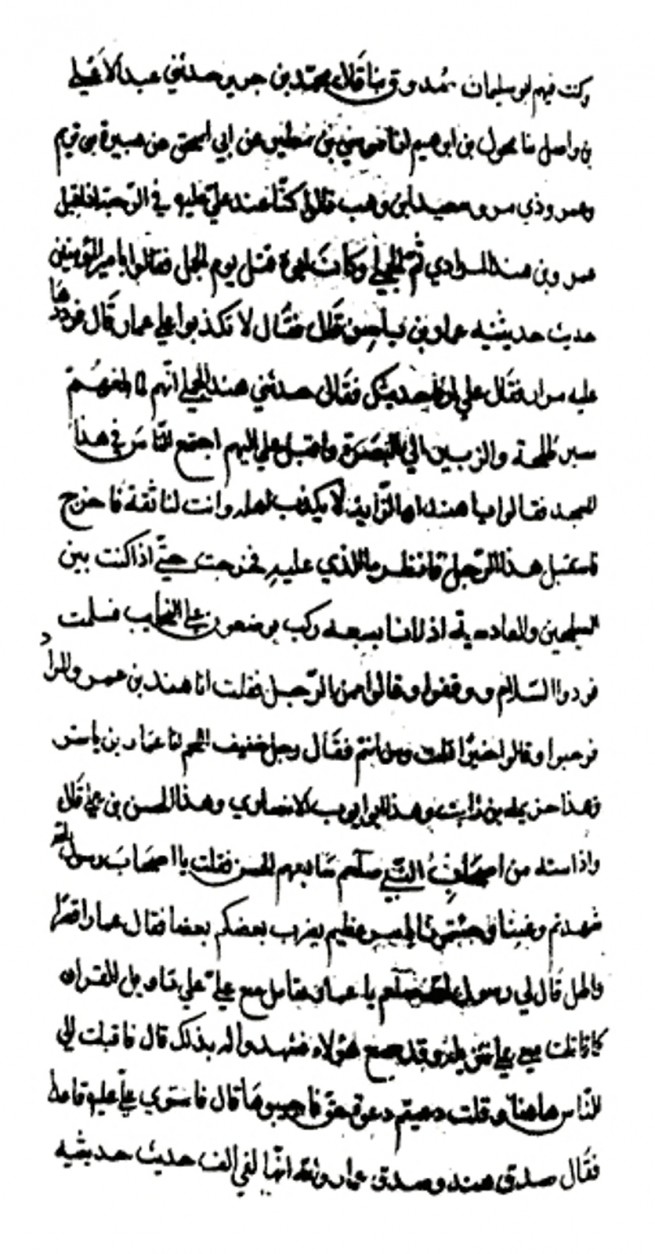 وكنت فيهم ابو سليمان قال محمد بن جرير حدثني عبد الاعلى
بن واصل نا مخول بن ابرهيم انا موسى بن مطير عن ابي اسحق عن هبيرة بن يريم
وعمرو ذي مر و سعيد بن وهب قالوا كنا عند علي عليه في الرحبة اذ اقبل
عمرو بن هند المرادي ثم الجملي وكان ابوه قتل يوم الجمل فقالوا يا امير المؤمنين
حديث حديثيه عمار بن ياسر قال فقال لا تكذبوا علي عمار قال فرددها
عليه مرارا فقال علي حديثك فقال حدثني هند الجملي انهم لما بلغهم
سير طلحة والزبير الي البصرة واقبل علي اليهم اجتمع الناس في هذا
المسجد فقالوا يا هند ان الرايد لا يكذب اهله وانت لنا ثقة فاخرج
فاستقبل هذا الرجل فانظر ما الذي عليه فخرجت حتي اذا كنت بين
السيلحين والقادسية اذ انا بسبعه ركب يوضعون علي النجايب فسلمت
فردوا السلام ووقفوا وقالوا من الرجل فقلت انا هند بن عمرو المراد
فرحبوا وقالوا خيرا قلت ومن انتم فقال رجل خفيف اللحم انا عمار بن ياسر
وهذا خزيمه بن ثابت وهذا ابو ايوب الانصاري وهذا الحسن بن علي قال
واذا سته من اصحاب النبي صلعم سابعهم الحسن فقلت يا اصحاب رسول الله
شهدتم وغبنا وجئتمونا بامر عظيم يضرب بعضكم بعضا فقال عمار
قال لي رسول الله صلعم يا عمار تقاتل مع علي علي تاويل القران
كما قاتلت معي علي تنزيله وقد سمع هؤلاء فشهدوا له بذلك قال فاقبلت الي
الناس هاهنا وقلت دعيتم دعوة حق فاجيبوها قال فاستوي علي عليه قاعدا
فقال صدق هند وصدق عمار والله انها لفي الف حديث حديثيه